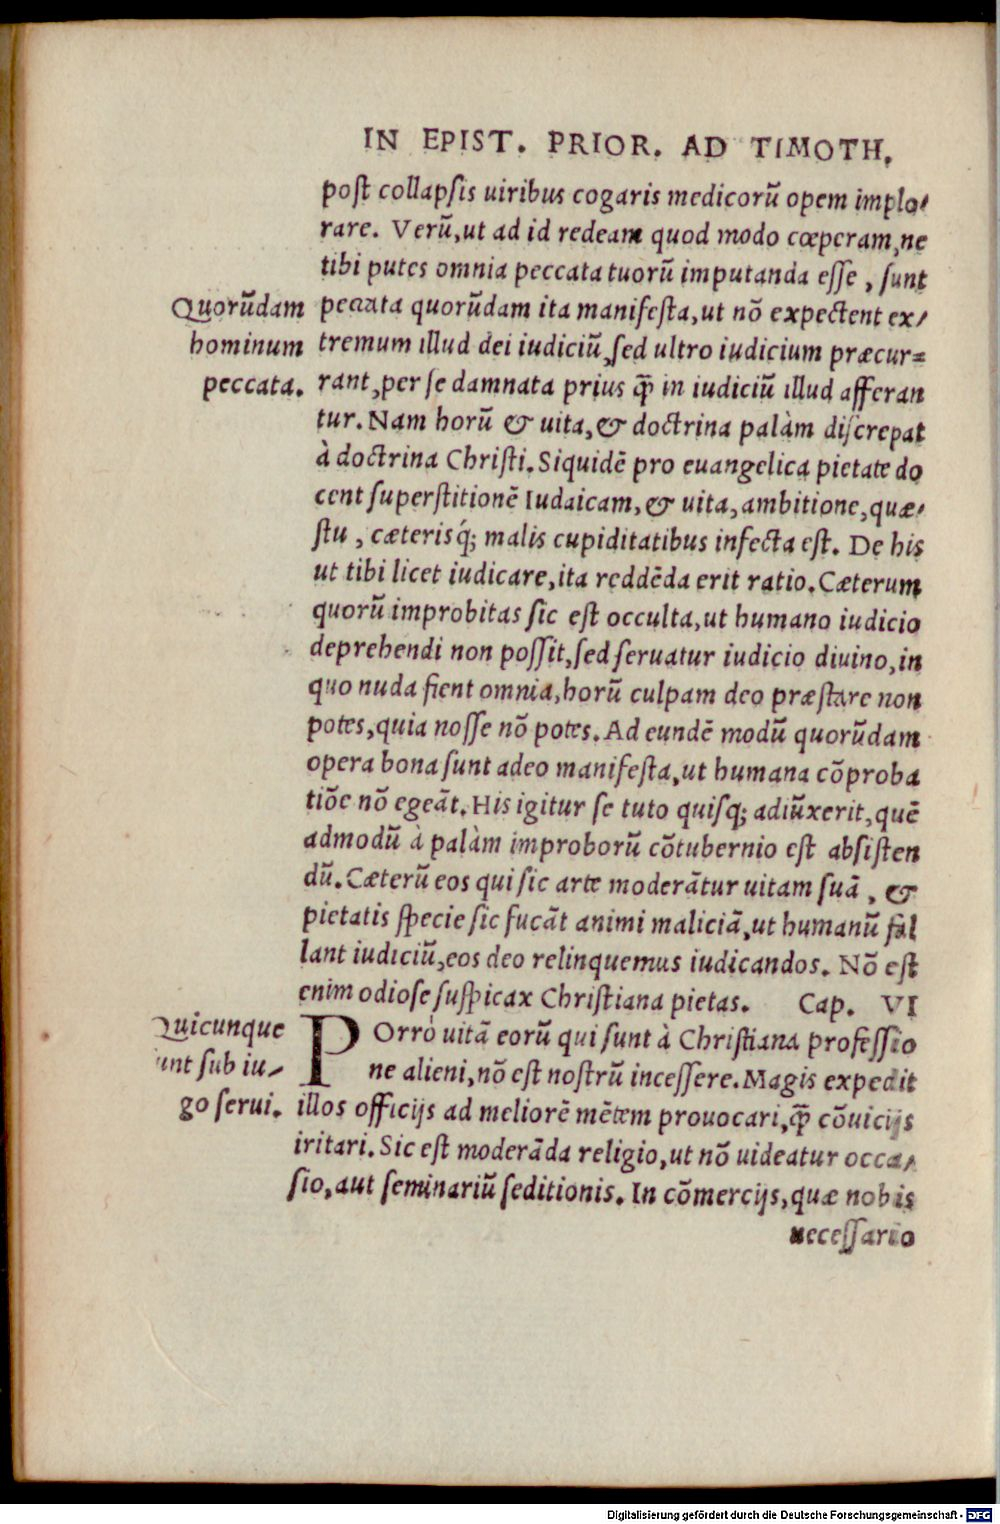 IN EPIST. PRIOR. AD TIMOTH.
post collapsis uiribus cogaris medicorũ opem implo⸗
rare. Verũ, ut ad id redeam quod modo cœperam, ne
tibi putes omnia peccata tuorũ imputanda esse, sunt
Quorũdam
hominum
peccata.
peccata quorũdam ita manifesta, ut nõ expectent ex⸗
tremum illud dei iudiciũ, sed ultro iudicium præcur⸗
rant, per se damnata prius q̃ in iudiciũ illud afferan
tur. Nam horũ & uita, & doctrina palàm discrepat
à doctrina Christi. Siquidẽ pro euangelica pietate do
cent superstitionẽ Iudaicam, & uita, ambitione, quæ⸗
stu, cæterisq́; malis cupiditatibus infecta est. De his
ut tibi licet iudicare, ita reddẽda erit ratio. Cæterum
quorũ improbitas sic est occulta, ut humano iudicio
deprehendi non possit, sed seruatur iudicio diuino, in
quo nuda fient omnia, horũ culpam deo præstare non
potes, quia nosse nõ potes. Ad eundẽ modũ quorũdam
opera bona sunt adeo manifesta, ut humana cõproba
tiõe nõ egeãt. His igitur se tuto quisq; adiũxerit, quẽ
admodũ à palàm improborũ cõtubernio est absisten
dũ. Cæterũ eos qui sic arte moderãtur uitam suã, &
pietatis specie sic fucãt animi maliciã, ut humanũ fal
lant iudiciũ, eos deo relinquemus iudicandos. Nõ est
enim odiose suspicax Christiana pietas. Cap. VI
Quicunque
unt sub iu⸗
go serui.
POrrò uitã eorũ qui sunt à Christiana professio
ne alieni, nõ est nostrũ incessere. Magis expedit
illos officijs ad meliorẽ mẽtem prouocari, q̃ cõuicijs
iritari. Sic est moderãda religio, ut nõ uideatur occa⸗
sio, aut seminariũ seditionis. In cõmercijs, quæ nobis
necessario
Digitalisierung gefördert durch die Deutsche Forschungsgemeinschaft - DFG